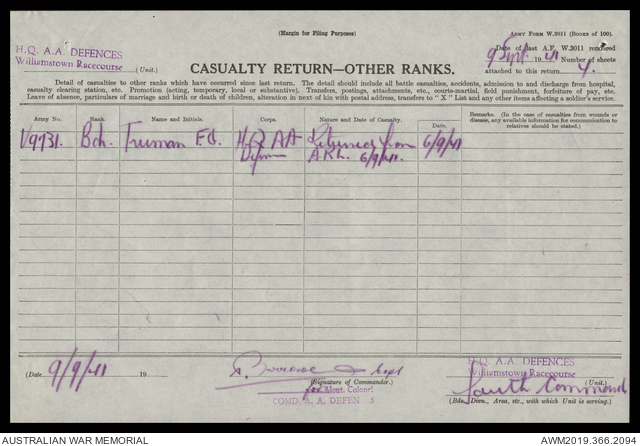 (Margin for Filing Purposes)
ARMY FORM W.3011 (BOOKS OF 100).
H.Q. A.A. DEFENCES
Williamstown Racecourse (Unit.)
Date of last A.F. W.3011 rendered
9 Sept. 1941 Number of sheets
attached to this return 4.
CASUALTY RETURN—OTHER RANKS.
Detail of casualties to other ranks which have occurred since last return. The detail should include all battle casualties, accidents, admission to and discharge from hospital,
casualty clearing station, etc. Promotion (acting, temporary, local or substantive). Transfers, postings, attachments, etc., courts-martial, field punishment, forfeiture of pay, etc.
Leave of absence, particulars of marriage and birth or death of children, alteration in next of kin with postal address, transfers to "X" List and any other items affecting a soldier's service.
Army No. Rank. Name and Initials. Corps. Nature and Date of Casualty. Date. Remarks. (In the case of casualties from wounds or
disease, any available information for communication to
relatives should be stated.)
V9931. Bdr. Truman F.G. H.Q AA Returned from 6/9/41
A.K.L. 6/9/41.
(Date 9/9/41 19
Capt
(Signature of Commander.)
for Lieut. Colonel
COMD. A. A. DEFEN S
H.Q. A.A. DEFENCES
Williamstown Racecourse (Unit.)
South Command
(Bde., Divn., Area, etc., with which Unit is serving.)
AUSTRALIAN WAR MEMORIAL
AWM2019.366.2094